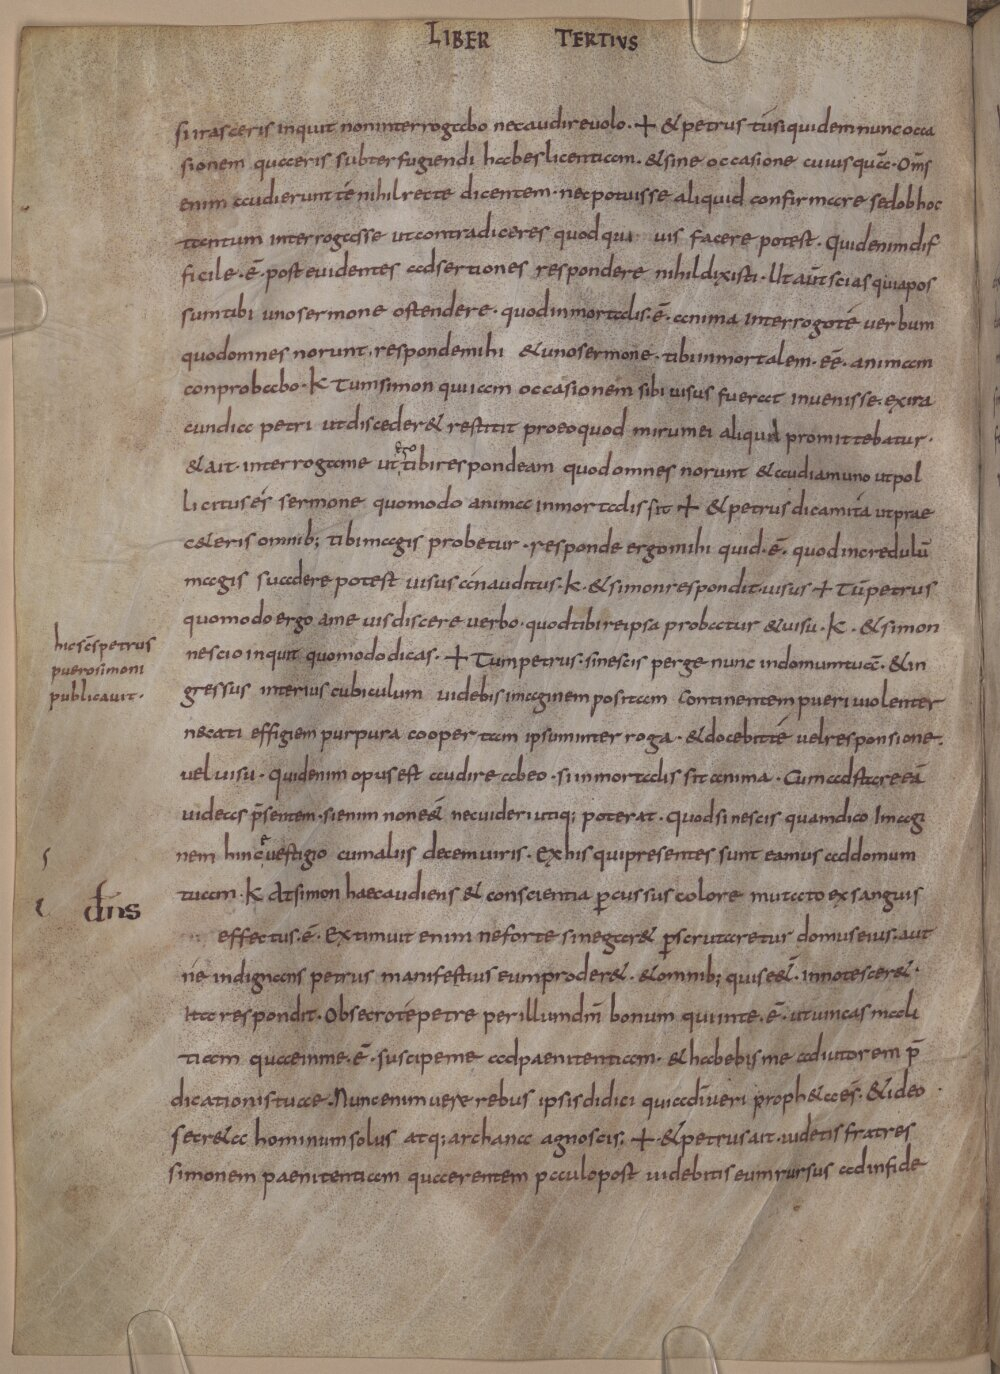 LIBER TERTIVS
si irasceris inquit non interrogabo nec audire uolo. ✝ & petrus tu siquidem nunc occa
sionem quaeris subterfugiendi habes licentiam. & sine occasione cuiusquā. Om̄s
enim audierunt té nihil recte dicentem. nec potuisse aliquid confirmare sed ob hoc
tantum interrogasse ut contradiceres quod qui uis facere potest. Quid enim dif
ficile. ē. post euidentes adsertiones respondere nihil dixisti. Ut aūt scias quia pos
sum tibi uno sermone ostendere. quod inmortalis. ē. anima interrogo té uerbum
quod omnes norunt. responde mihi & uno sermone. tibi inmortalem. eē. animam
conprobabo. K Tum simon qui iam occasionem sibi uisus fuerat inuenisse. ex ira
cundia petri ut disceder& restitit pro eo quod mirum ei aliquid promittebatur.
& ait. interroga me ut ego tibi respondeam quod omnes norunt & audiam uno ut pol
licitus és sermone quomodo anima inmortalis sit ✝ & petrus dicam ita ut prae
c&eris omnib; tibi magis probetur. responde ergo mihi quid. ē. quod incredulū
magis suadere potest uisus an auditus. K. & simon respondit. uisus ✝ Tū petrus
quomodo ergo a me uis discere uerbo. quod tibi re ipsa probatur & uisu. K. & simon
nescio inquit quomodo dicas. ✝ Tum petrus. si nescis perge nunc in domum tuā. & in
gressus interius cubiculum uidebis imaginem positam continentem pueri uiolenter
necati effigiem purpura coopertam ipsum interroga. & docebit té uel responsione.
uel uisu. Quid enim opus est audire ab eo. si inmortalis sit anima. Cum adstare eā
uideas p̄sentem. si enim non eē& nec uideri utiq; poterat. Quod si nescis quam dico Imagi
nem hinc e uestigio cum aliis decem uiris. Ex his qui presentes sunt eamus ad domum
tuam. K At simon haec audiens & conscientia percussus colore mutato exsanguis
effectus. ē. Extimuit enim ne forte si negar& perscrutaretur domus eius. aut
né indignans petrus manifestius eum proder&. & omnib; quis eē&. innotescer&.
Ita respondit. Obsecro té petre per illum dm̄ bonum qui in te. ē. ut uincas mali
tiam quae in me. ē. suscipe me ad paenitentiam. & habebis me adiutorem p̄
dicationis tuae. Nunc enim uere rebus ipsis didici quia dī ueri proph&a és. & ideo
secr&a hominum solus atq; archana agnoscis. ✝ & petrus ait. uidetis fratres
simonem paenitentiam quaerentem paulo post uidebitis eum rursus ad infide
hic scs̄ petrus
puerō simoni
publicauit.
dn̄s